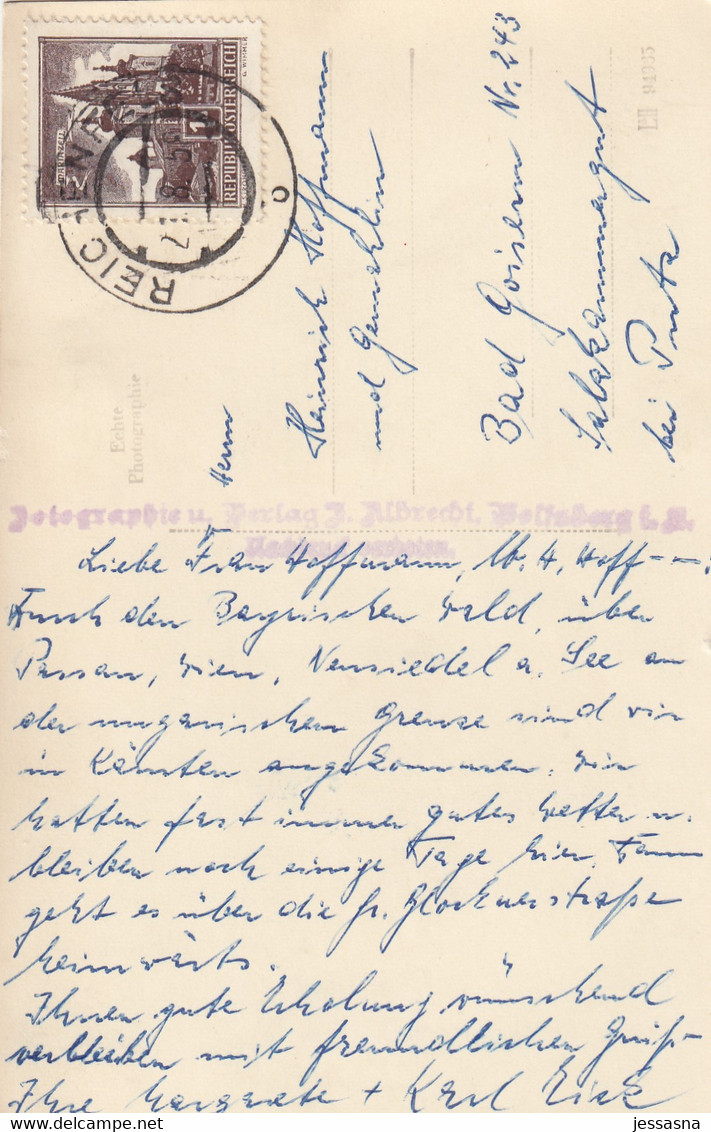 REPUBLIK ÖSTERREICH
MARIAZELL
1
REICHENFELS
Echte
Photographie
94935
Herrn
Heinrich Hoffmann
und Gemahlin
Bad Goisern Nr. 243
Salzkammergut
bei Putz
Fotographie u. Verlag J. Albrecht, Wolfsberg i. K.
Nachdruck verboten.
Liebe Frau Hoffmann, lb. H. Hoff--:
Durch den Bayrischen Wald, über
Passau, Wien, Neusiedel a. See an
der ungarischen Grenze sind wir
in Kärnten angekommen. Wir
hatten fast immer gutes Wetter u.
bleiben noch einige Tage hier. Dann
geht es über die Gr. Glocknerstraße
heimwärts.
Ihnen gute Erholung wünschend
verbleiben mit freundlichen Gruß-
Ihre Margrete + Karl
jessasna